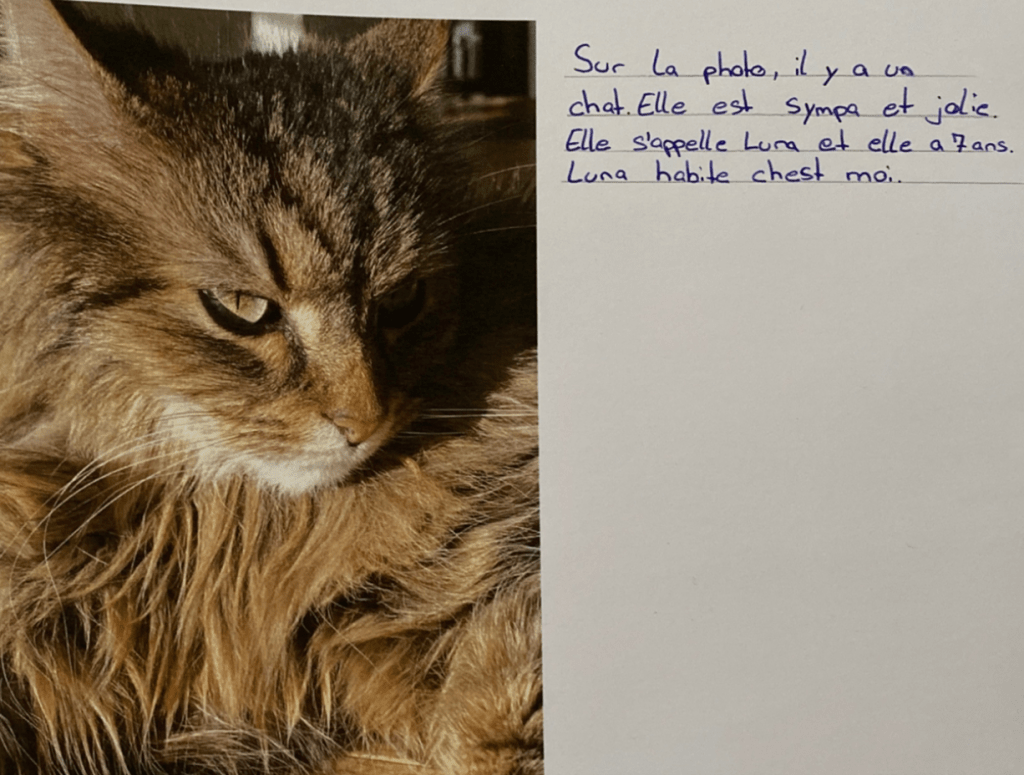 Sur la photo, il y a un
chat. Elle est sympa et jolie.
Elle s'appelle Luna et elle a 7 ans.
Luna habite chest moi.